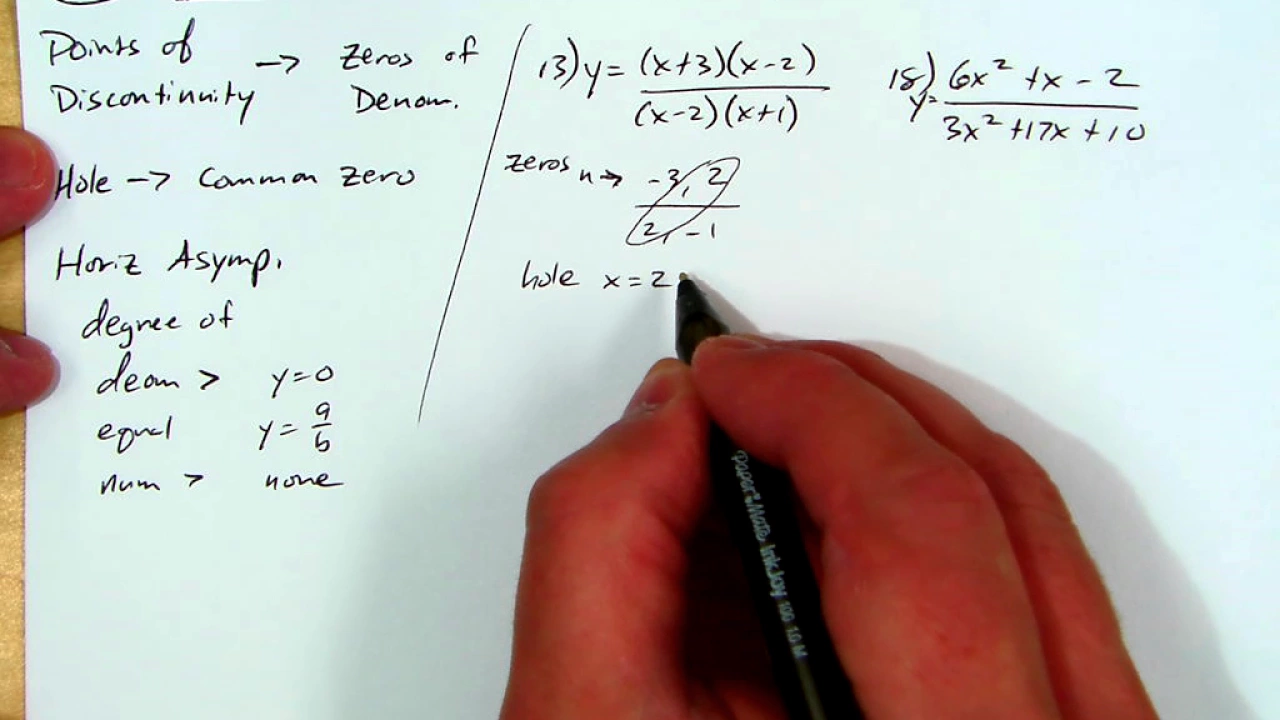 Points of
Discontinuity → Zeros of
Denom.
Hole → Common Zero
Horiz Asymp.
degree of
deom > y=0
equal y = a/b
num > none
13) y = (x+3)(x-2)
(x-2)(x+1)
zeros n→ -3, 2
2, -1
hole x = 2
18) 6x² + x - 2
y=
3x² + 17x + 10
Paper Mate InkJoy 100 1.0 M